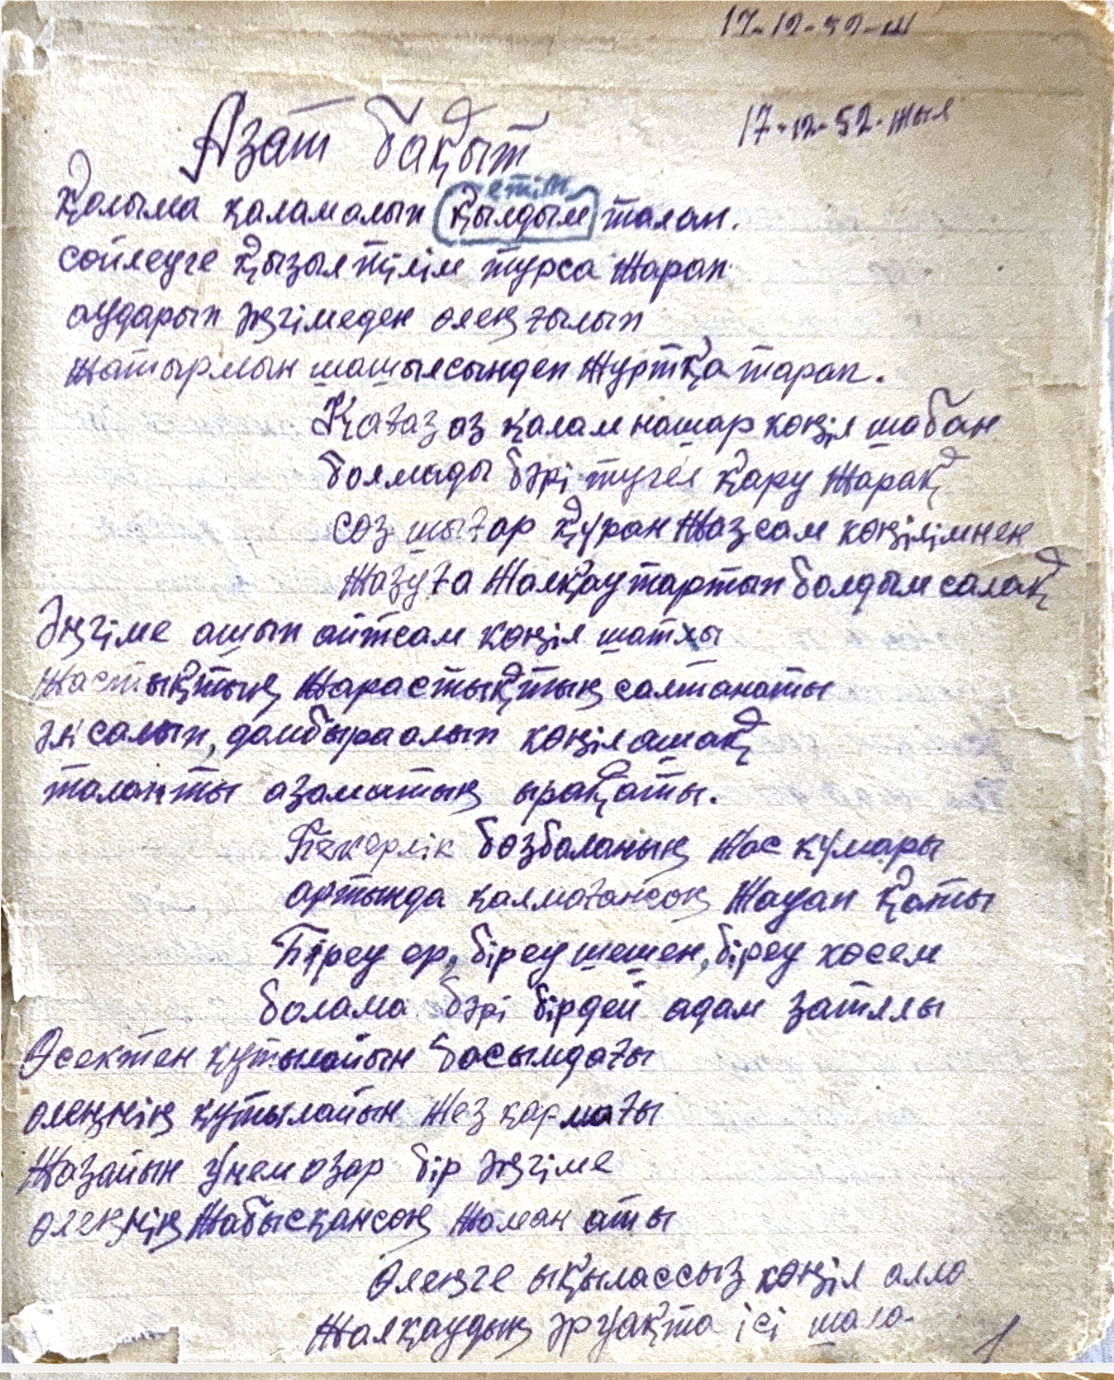 17-12-52-ж
17-12-52-жыл
Азат бақыт
етіп
қолыма қалам алып қылдым талап.
сөйлеуге қызыл тілім турса жарап
аударып әңгімеден өлең ғылып
жатырмын шашылсынден журтқа тарап.
Қағаз аз қалам нашар көңіл шабан
болмады бәрі түгел қару жарақ
сөз шығар құран жазсам көңілімнен
жазуға жалқау тартып болдым салақ
Әңгіме ашып айтсам көңіл шатлы
жастықтың жарастықтың салтанаты
ән салып, домбыра алып көңіл ашақ
талантты азаматың ырақаты.
Бекерлік бозбаланың жас құмары
артында қалмағансоң жауап қаты
Біреу ер, біреу шешен, біреу көсем
болама бәрі бірдей адам затлы
Өсектен құтылайын басымдағы
өлеңнің құтылайын жез қармағы
жазайын үнем озар бір әңгіме
өлеңнің жабысқансоң жаман аты
Өлеңге ықылассыз көңіл алла
жалқаудың әруақта ісі шала.